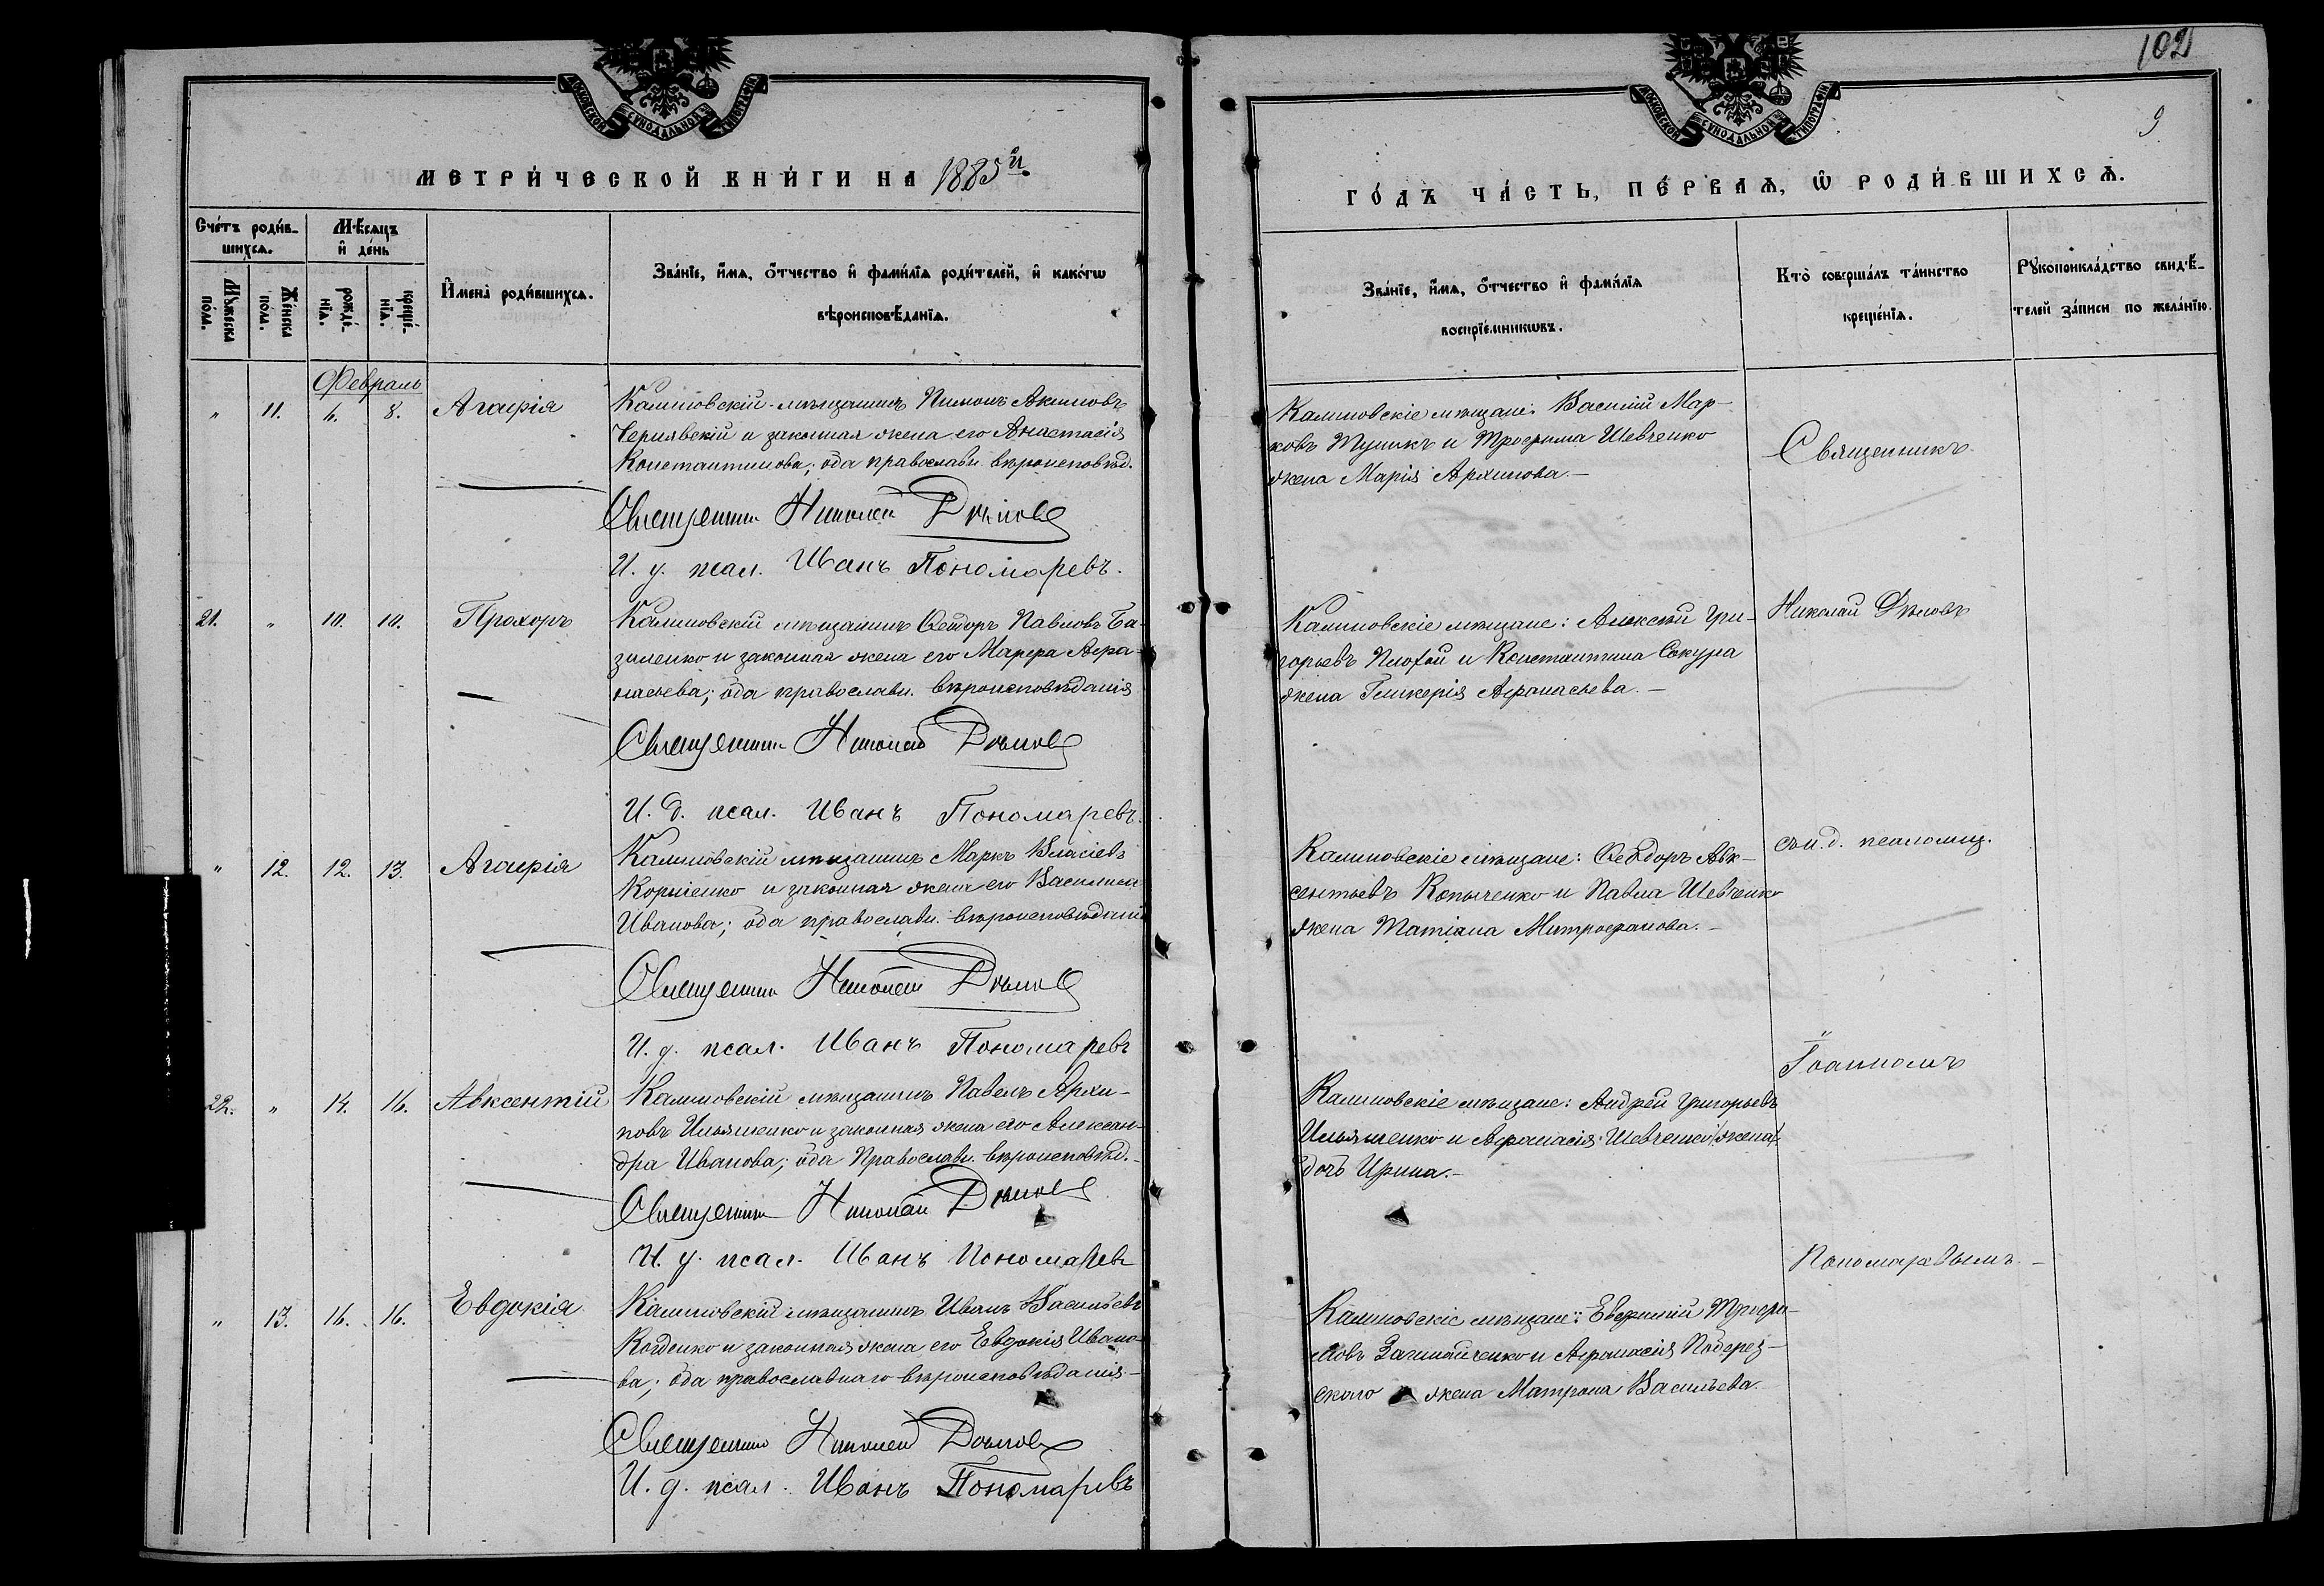 102
9
МОСКОВСКОЙ СѴНОДАЛЬНОЙ ТИПОГРАФІИ
МЕТРИ́ЧЕСКОЙ КНИ́ГИ НА 1885й
Сче́тъ роди́в-
шихсѧ.
Мѣ́сѧцъ
и҆ де́нь
Мꙋ́жеска
по́лꙋ.
Же́нска
по́лꙋ.
рожде́-
нїѧ.
креще́-
нїѧ.
И҆мена̀ роди́вшихсѧ.
Зва́нїе, и҆́мѧ, ѻ҆́тчество и҆ фами́лїѧ роди́телей, и҆ како́гѡ
вѣроисповѣ́данїѧ.
Февраль
" 11. 6. 8. Агаѳія
Калиновскій мѣщанинъ Пименъ Акимовъ
Чернявскій и законная жена его Анастасія
Константинова; оба православн. вѣроисповѣд.
Священникъ Николай Дѣмовъ
И. д. псал. Иванъ Пономаревъ.
21. " 10. 10. Прохоръ
Калиновскій мѣщанинъ Ѳеодоръ Павловъ Ба-
зиленко и законная жена его Марѳа Аѳа-
насьева; оба православн. вѣроисповѣданія
Священникъ Николай Дѣмовъ
И. д. псал. Иванъ Пономаревъ.
" 12. 12. 13. Агаѳія
Калиновскій мѣщанинъ Маркъ Власіевъ
Корніенко и законная жена его Василиса
Иванова; оба православн. вѣроисповѣданія
Священникъ Николай Дѣмовъ
И. д. псал. Иванъ Пономаревъ
22. " 14. 16. Авксентій
Калиновскій мѣщанинъ Павелъ Архи-
повъ Ильяшенко и законная жена его Алексан-
дра Иванова; оба Православн. вѣроисповѣд.
Священникъ Николай Дѣмовъ
И. д. псал. Иванъ Пономаревъ
" 13. 16. 16. Евдокія
Калиновскій мѣщанинъ Иванъ Васильевъ
и законная жена его Евдокія Ивано-
ва; оба православнаго вѣроисповѣданія
Священникъ Николай Дѣмовъ
И. д. псал. Иванъ Пономаревъ
МОСКОВСКОЙ СѴНОДАЛЬНОЙ ТИПОГРАФІИ
ГО́ДЪ ЧА́СТЬ, ПЕ́РВАѦ, Ѡ҆ РОДИ́ВШИХСѦ.
Зва́нїе, и҆́мѧ, ѻ҆́тчество и҆ фами́лїѧ
воспрїе́мникѡвъ.
Кто̀ соверша́лъ та́инство
креще́нїѧ.
Рꙋкоприкла́дство свидѣ́-
телей за́писи по жела́нїю.
Калиновскіе мѣщане: Василій Мар-
ковъ и Трофима Шевченко
жена Марія Архипова.
Священникъ
Калиновскіе мѣщане: Алексѣй Гри-
горьевъ Плохой и Константина Сокура
жена Гликерія Аѳанасьева.
Николай Дѣмовъ
Калиновскіе мѣщане: Ѳеодоръ Авк-
сентьевъ Копыченко и Павла Шевченко
жена Татіана Митрофанова.
съ и. д. псаломщ.
Іоанномъ
Калиновскіе мѣщане: Андрей Григорьевъ
Ильяшенко и Аѳанасія Шевченко (жена)
дочь Ирина.
Пономаревымъ.
Калиновскіе мѣщане: Евфимій Трифо-
новъ и Аѳанасія Подерез-
скаго жена Матрона Васильева.